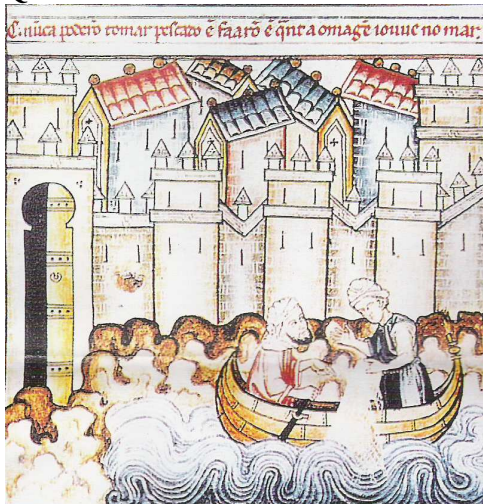 C̃. nũca poderõ tomar pescado ẽ faarõ ẽ q̃nt a omagẽ iouue no mar: